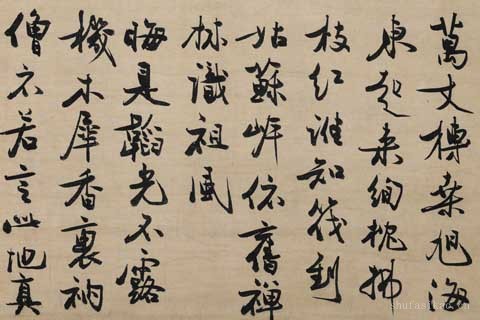 萬丈榑桑旭海
東起来絢枕拂
枝紅誰知筏到
姑蘇岸依舊禅
林識祖風
晦是韜光不露
機木犀香裏衲
僧衣若言此地真